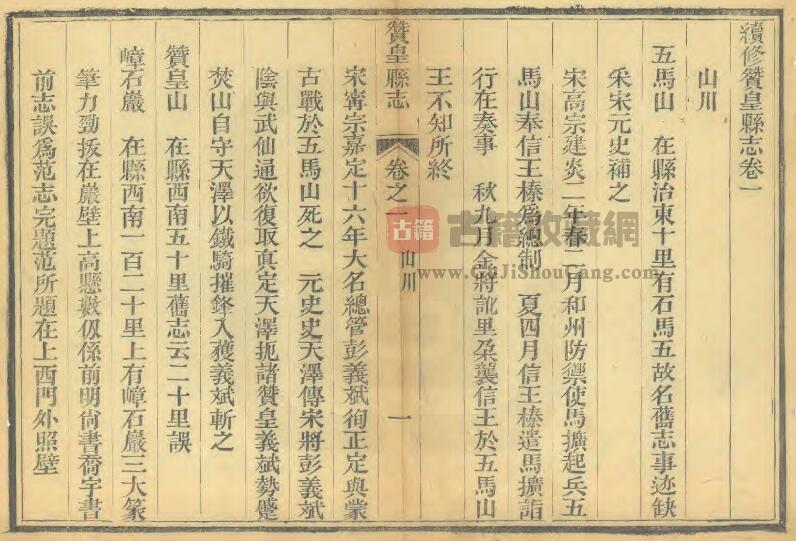 續修贊皇縣志卷一
山川
五馬山 在縣治東十里有石馬五故名舊志事迹缺
采宋元史補之
宋高宗建炎二年春二月和州防禦使馬擴起兵五
馬山奉信王榛爲總制 夏四月信王榛遣馬擴詣
行在奏事 秋九月金將訛里朶襲信王於五馬山
王不知所終
贊皇縣志 卷之一 山川 一
宋寧宗嘉定十六年大名總管彭義斌徇正定與蒙
古戰於五馬山死之 元史史天澤傳宋將彭義斌
陰與武仙通欲復取眞定天澤扼諸贊皇義斌勢蹙
焚山自守天澤以鐵騎摧鋒入獲義斌斬之
贊皇山 在縣西南五十里舊志云二十里誤
嶂石巖 在縣西南一百二十里上有嶂石巖三大篆
筆力勁扳在巖壁上高懸數仭係前明尙書喬宇書
前志誤爲范志完題范所題在上西門外照壁
古籍 古籍收藏網
www.GuJiShouCang.com